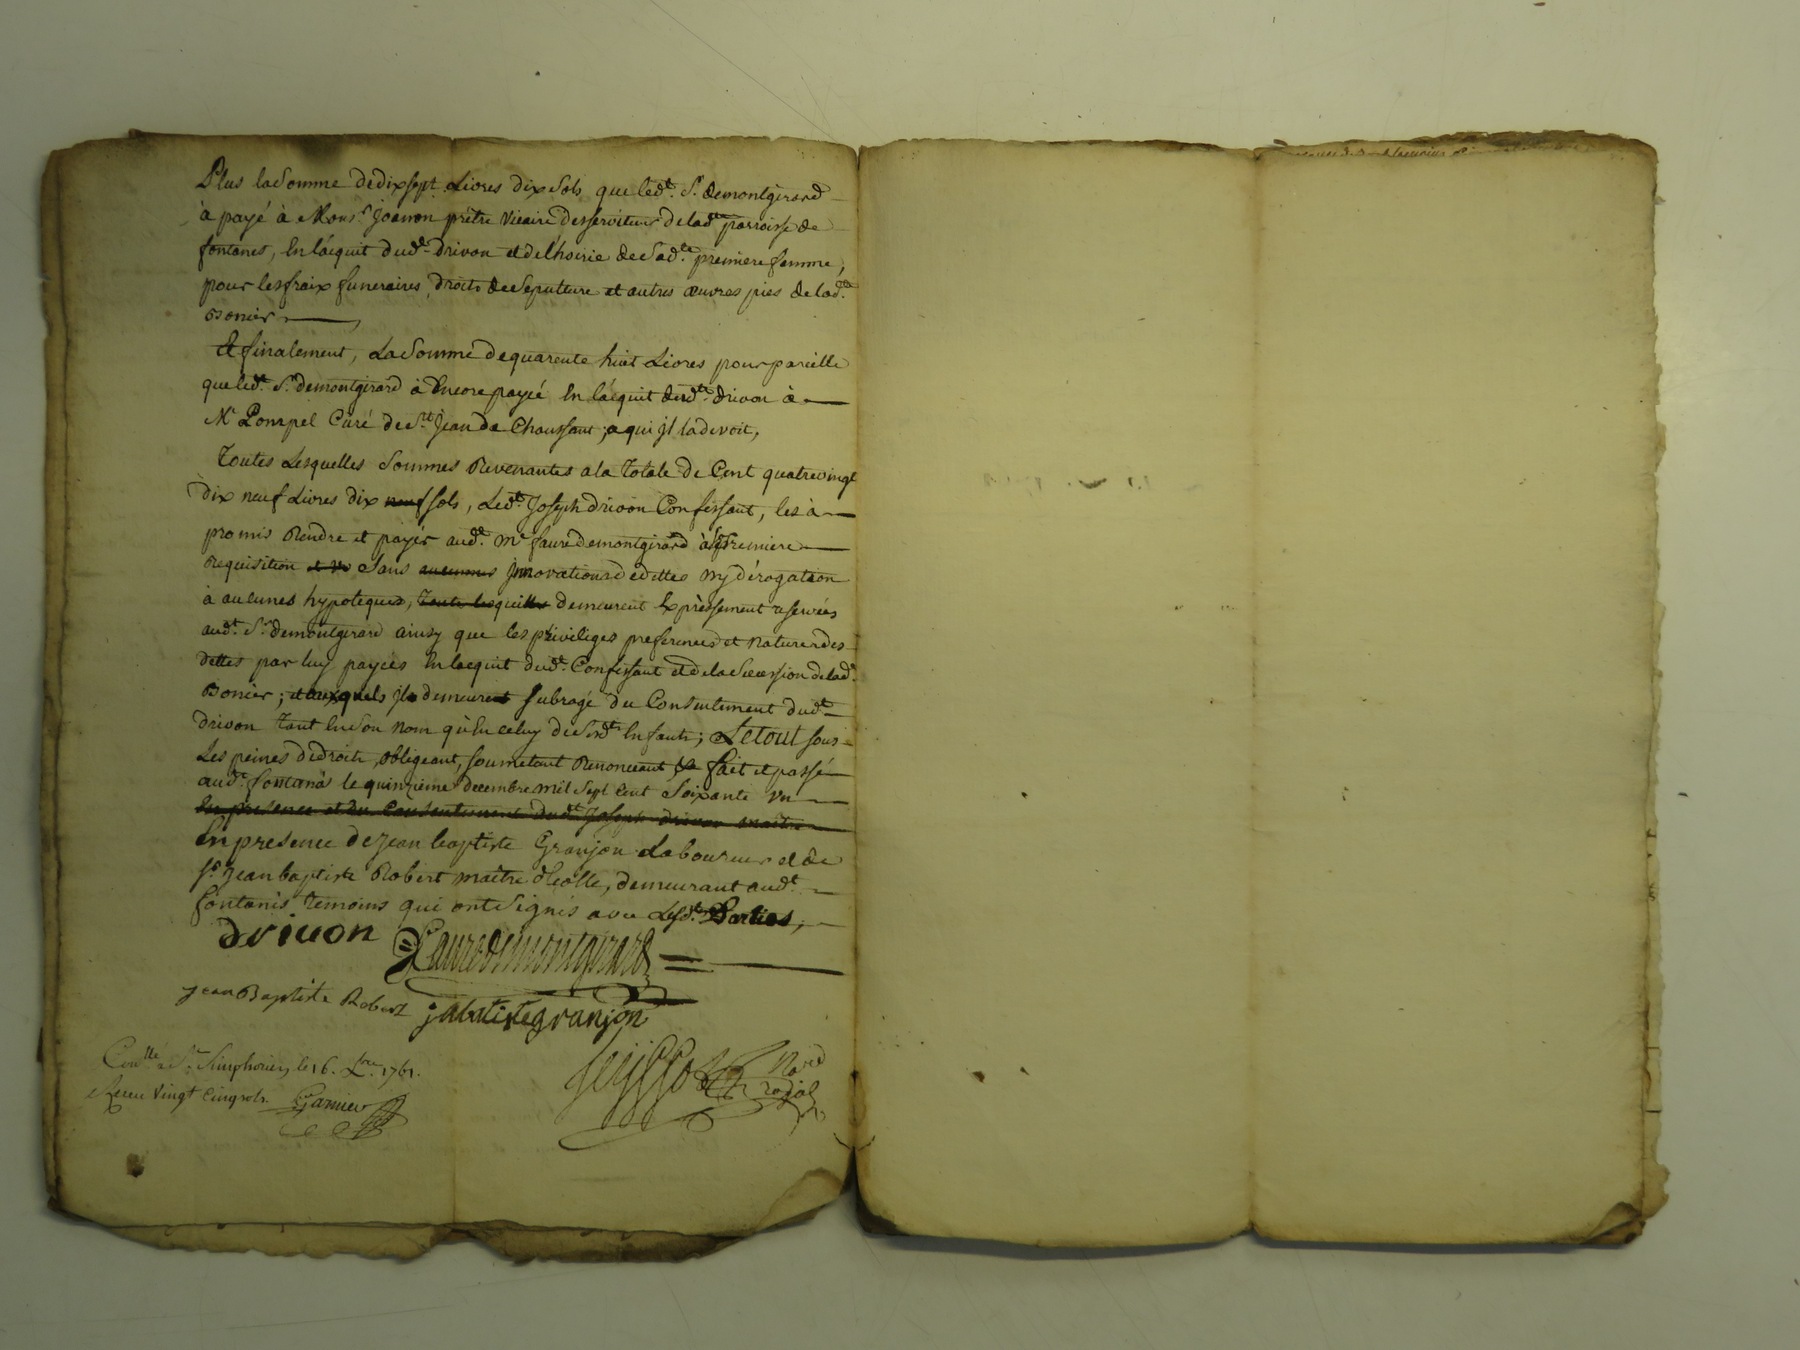 Plus la Somme de dix sept Livres dix Sols que ledt. Sr. demontgirard
à payé à Monsr. Joannon prêtre vicaire desserviteur de ladte parroisse de
fontanes, En lácquit dudt. drivon et de lhoirie de Sadte. premiere femme,
pour les fraix funeraires, droits de Sepulture et autres œuvres pies de ladte.
Bonier
Et finalement, La Somme de quarente huit Livres pour pareille
que ledt. Sr. demontgirard à Encore payéé En lácquit dudt. drivon à
Mr Pompel Curé de St. Jean de Chaussant, a qui jl la devoit,
Toutes Lesquelles Sommes Revenantes a la Totale de Cent quatrevingt
Dix neuf Livres dix neuf sols, Ledt. Joseph drivon Confessant, les à
promis Rendre et payér audt. Mr faure demontgirard à Sa premiere
Requisition et Sans aucunes jnnovations de dettes ny dérogation
à aucunes hypoteques, toutes lesquelles demeurent Expressement reservées
audt. Sr. demontgirard ainsy que les priviliges preferences et Natures des
dettes par luy payées En lacquit dudt. Confessant et de la Sucession de ladte.
Bonier; et auxquels jl demeurent Subrogé du Consentement dudt.
drivon tant En Son Nom qu'En celuy de Sesdts. Enfants; Le tout sous
Les peines de droit, obligeant, soumetant Renonceant fait et passé
audt. fontanès le quinzieme decembre mil Sept Cent Soixante Un
En presence et du Consentement dudt Joseph drivon maitre
En presence de Jean baptiste Granjon Laboureur et de
Sr. Jean baptiste Robert maître d'Ecolle, demeurant audt.
fontanès temoins qui ont Signés avec Lesdt. Parties,
drivon Fauredemontgirard
Jean Baptiste Robert jabatistegranjon
Conllé a St. Simphorien le 16. Xbre 1761.
Receu Vingt cinq sols. Garnier
Nore
royal